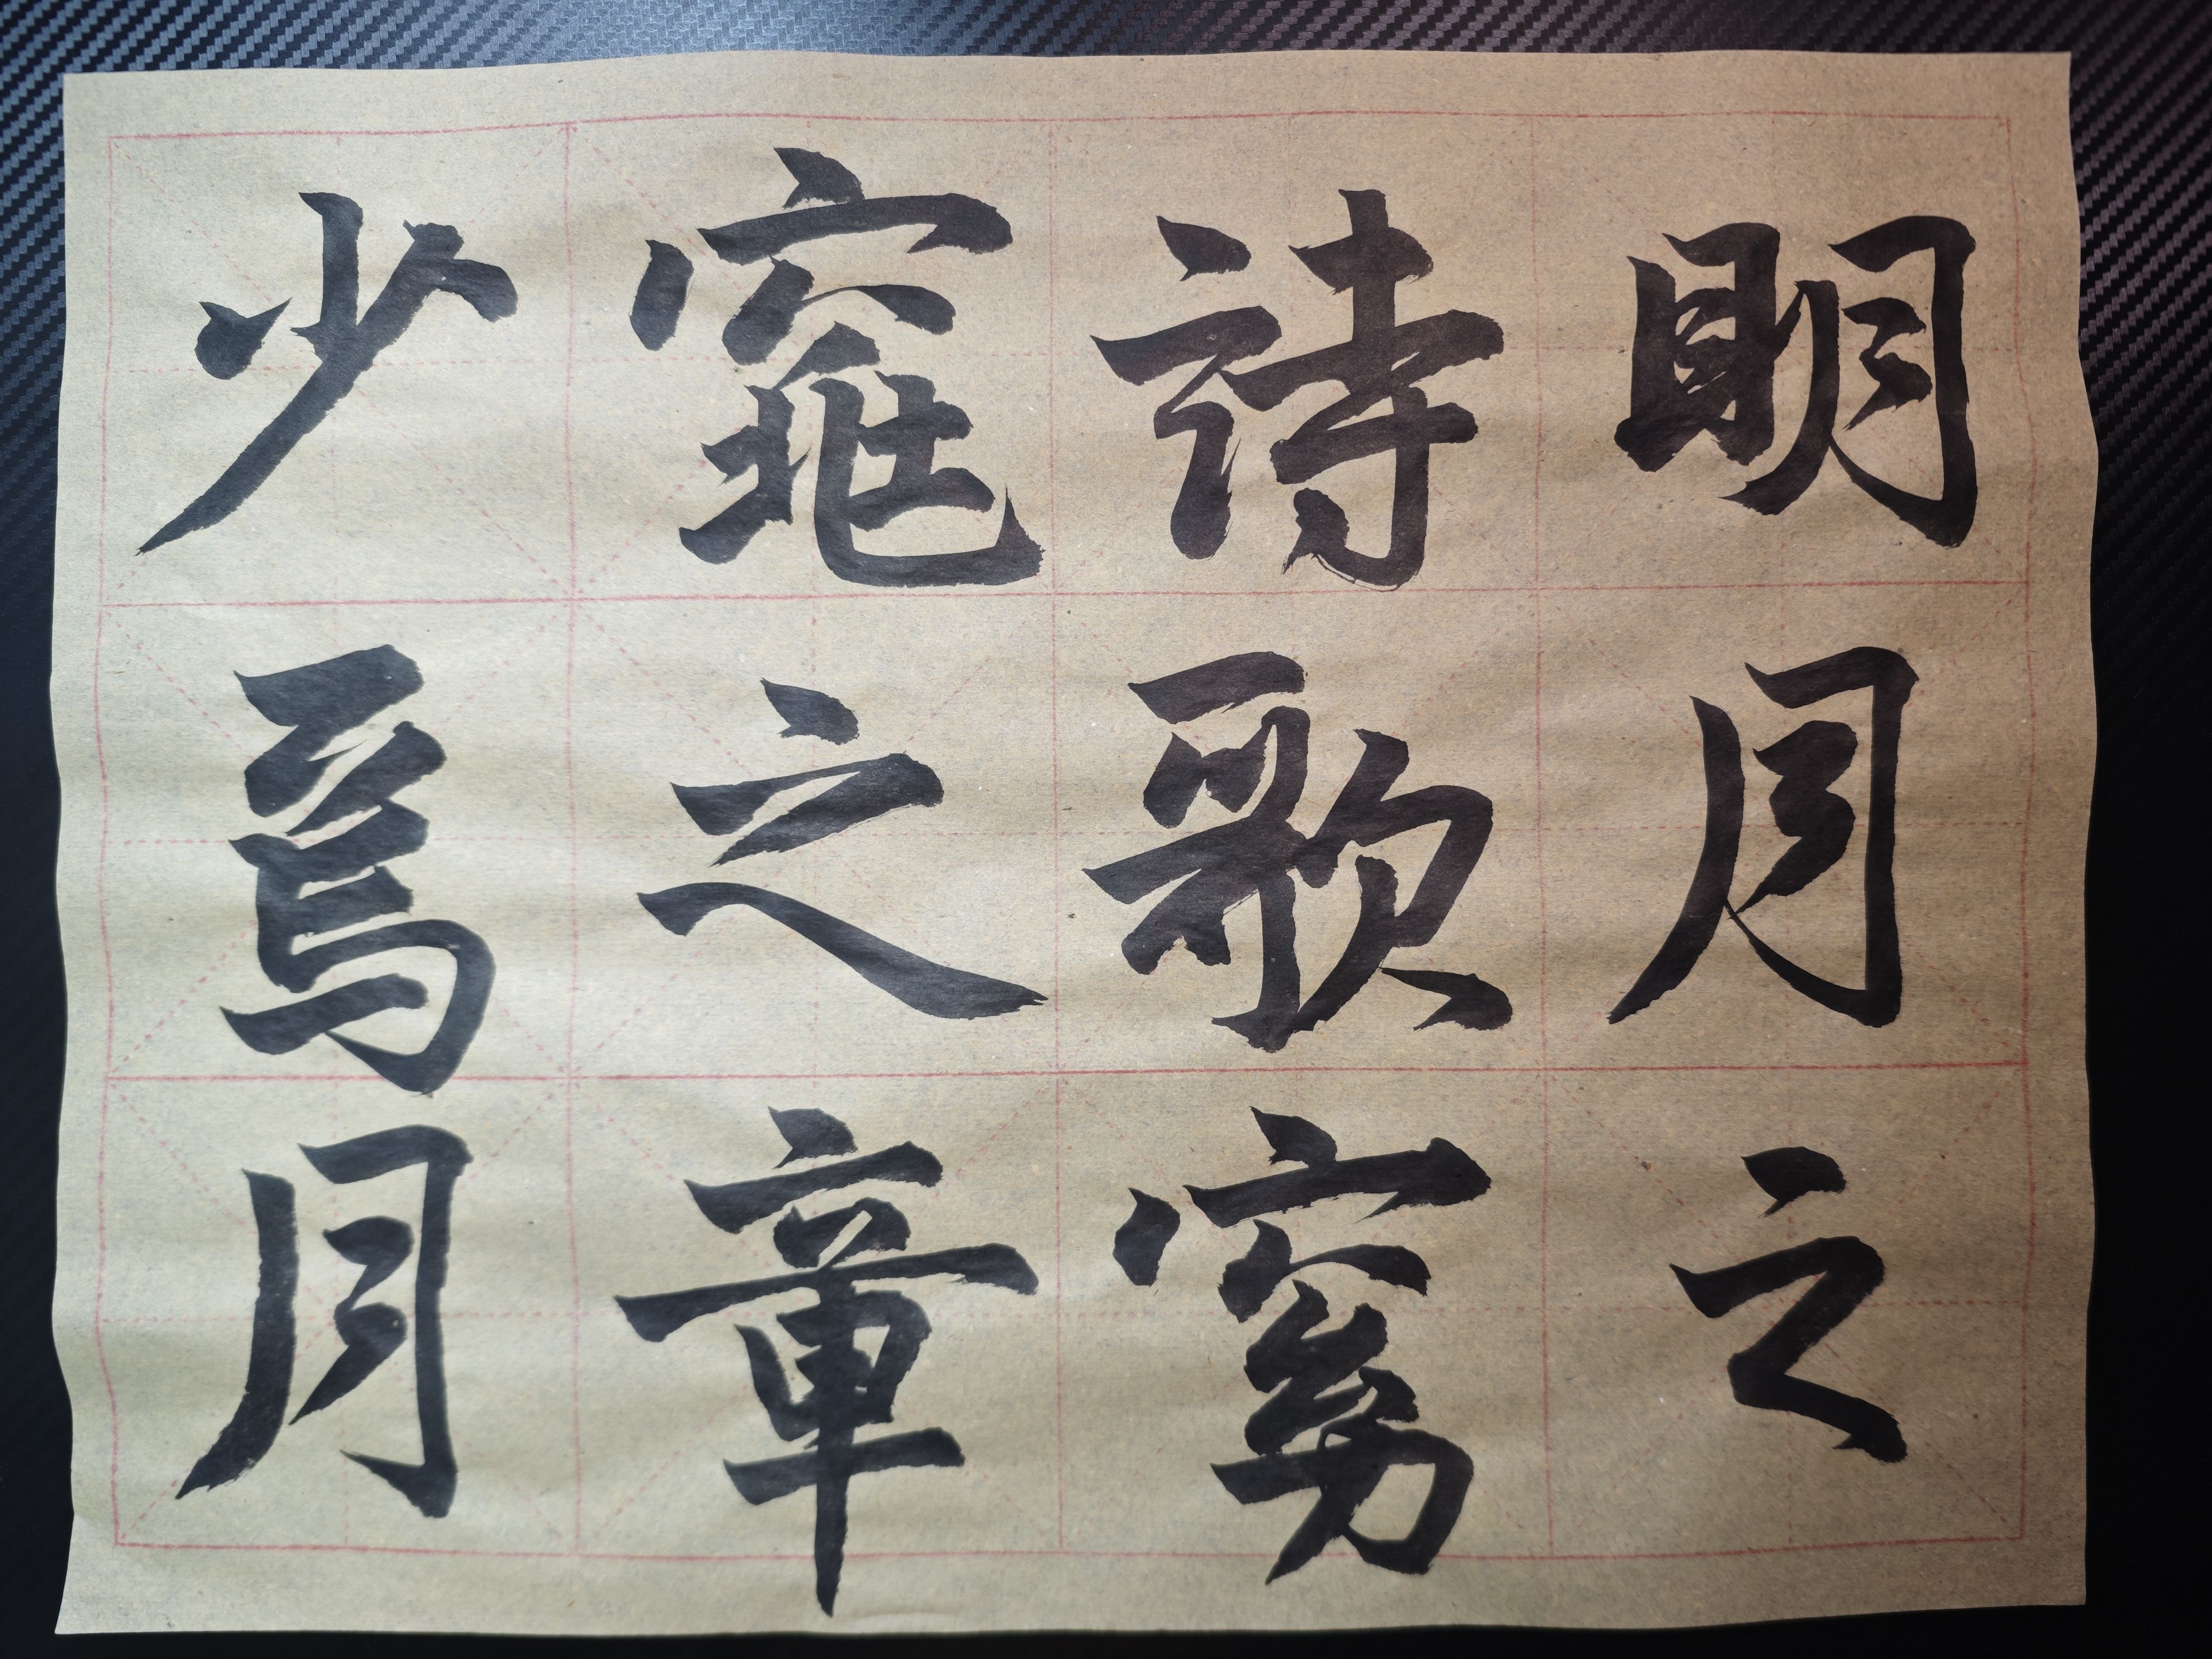 明月之
詩歌窈
窕之章
少焉月